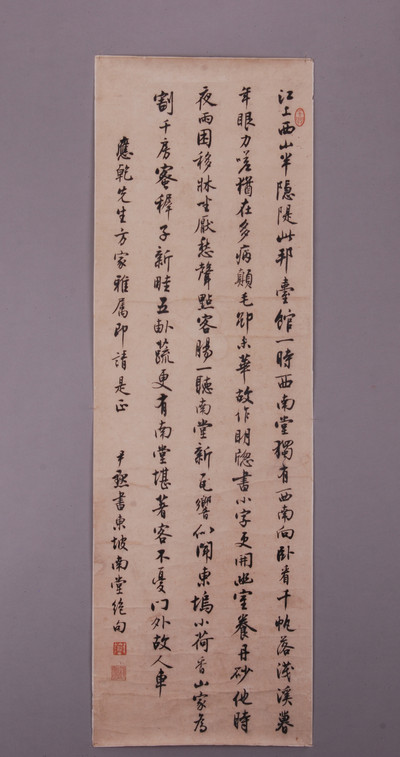 江上西山半隐隄此邦臺館一時西南堂獨有西南向卧看千帆落淺溪暮
年眼力嗟猶在多病顛毛卻未華故作明牕書小字更開幽室養丹砂他時
夜雨困移牀坐厭愁聲點客腸一聽南堂新瓦響似聞東塢小荷香山家為
割千房蜜稺子新畦五畝蔬更有南堂堪著客不憂門外故人車
應乾先生方家雅屬即請是正 尹默書東坡南堂絕句